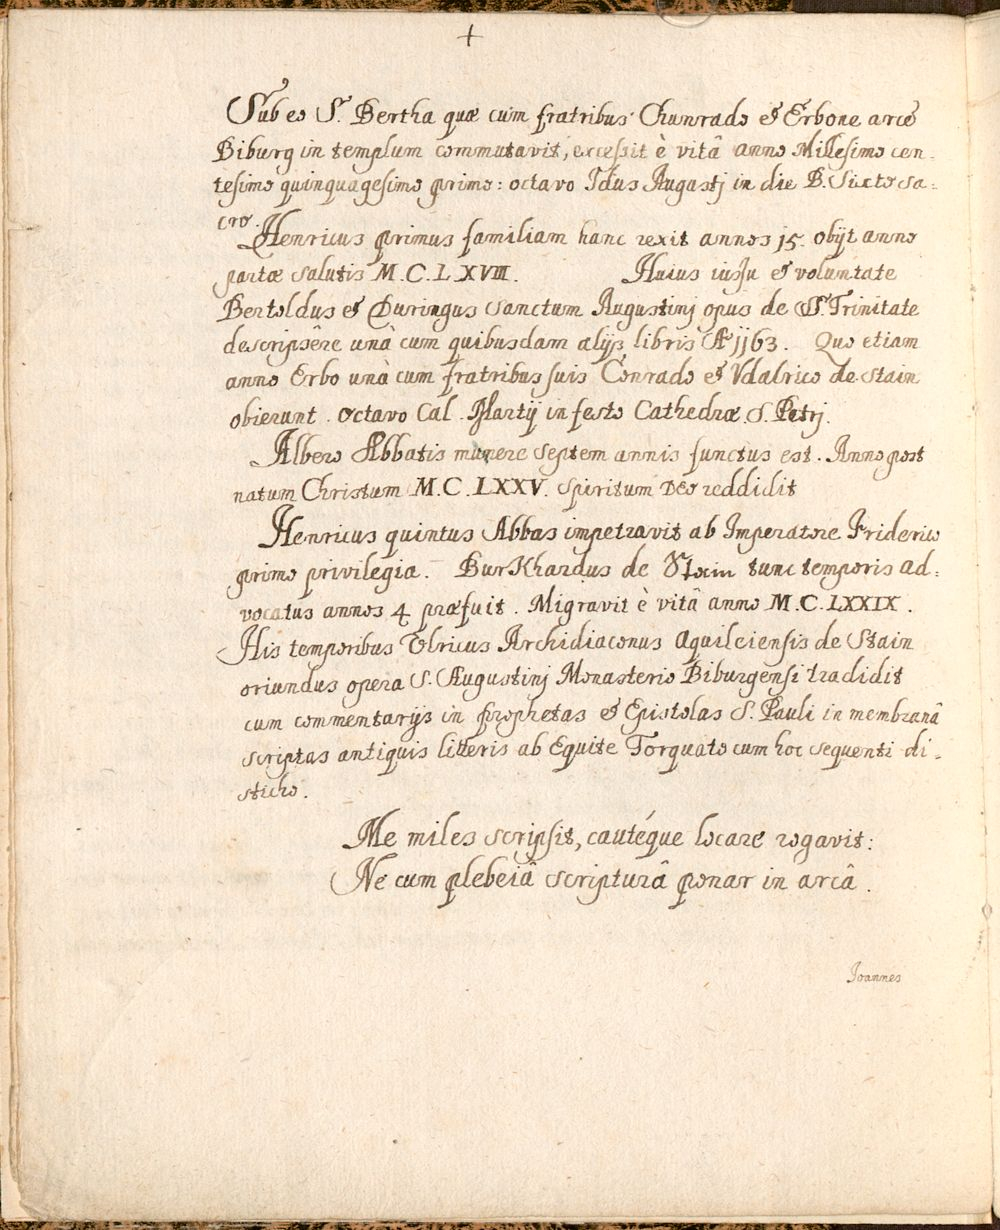 +
Sub eo S. Bertha quæ cum fratribus Chunrado et Erbone arcē
Biburg in templum commutavit, excessit è vitâ anno Millesimo cen-
tesimo quinquagesimo primo: octavo Idus Augustj in die B. Sixto sa-
cro.
Henricus primus familiam hanc rexit annos 15. obijt anno
partæ salutis M.C.LXVIII. Huius iussu et voluntate
Bertoldus et Duringus sanctum Augustinj opus de SS. Trinitate
descripsêre unà cum quibusdam alijs libris Aº 1163. Quo etiam
anno Erbo unà cum fratribus suis Conrado et Vdalrico de Stain
obierunt. octavo Cal. Martij in festo Cathedræ S. Petrj.
Albero Abbatis munere septem annis functus est. Anno post
natum Christum M.C.LXXV. spiritum DEO reddidit
Henricus quintus Abbas impetravit ab Imperatore Friderico
primo privilegia. BurKhardus de Stain tunc temporis ad-
vocatus annos 4 præfuit. Migravit è vitâ anno M.C.LXXIX.
His temporibus Volricus Archidiaconus Aquileiensis de Stain
oriundus opera S. Augustinj Monasterio Biburgensi tradidit
cum commentarijs in prophetas et Epistolas S. Pauli in membranâ
scriptas antiquis litteris ab Equite Torquato cum hoc sequenti di-
sticho.
Me miles scripsit, cautéque locare rogavit:
Ne cum plebeiâ scripturâ ponar in arcâ.
Joannes